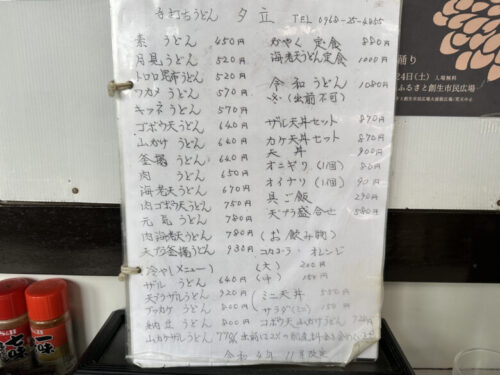 手打ちうどん 夕立 TEL 0968-25-4455
素 うどん 450円
月見 うどん 520円
トロロ昆布うどん 520円
ワカメ うどん 570円
キツネ うどん 570円
ゴボウ天うどん 640円
山かけ うどん 640円
釜揚 うどん 640円
肉 うどん 650円
海老天うどん 670円
肉ゴボウ天うどん 750円
元気 うどん 780円
肉海老天うどん 780円
天プラ釜揚うどん 930円
冷やしメニュー
ザル うどん 640円
天プラザルうどん 920円
ブッカケ うどん 800円
納豆 うどん 800円
山カケザルうどん 770
かやく 定食 880円
海老天うどん定食 1000円
令和うどん 1080円
※(出前不可)
ザル天丼セット 870円
カケ天丼セット 870円
天丼 900円
オニギリ (1個) 80円
オイナリ (1個) 90円
具ご飯 290円
天プラ盛合せ 580円
(お飲み物)
コカコーラ・オレンジ
(大) 200円
(中) 150円
ミニ天丼 550円
サラダ(ミニ) 150円
ゴボウ天山かけうどん
令和4年 11月改定
踊り
24日(土) 入場無料
ふるさと創生市民広場
一味